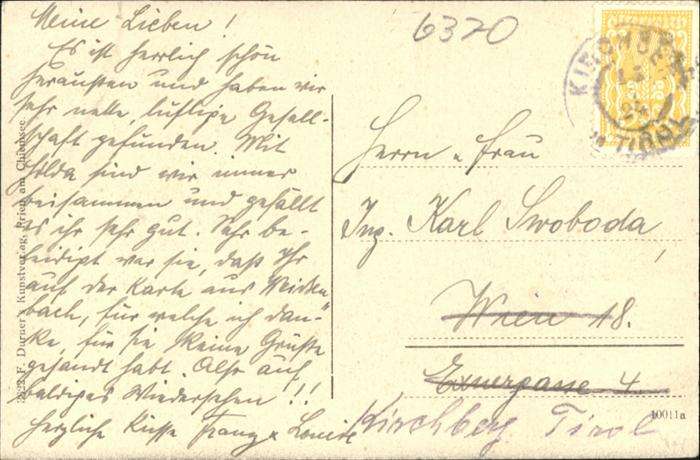 Meine Lieben!
Es ist herrlich schön
heraußen und haben wir
sehr nette, lustige Gesell-
schaft gefunden. Mit
Hilda sind wir immer
beisammen und gefällt
es ihr sehr gut. Sehr be-
leidigt war sie, daß Ihr
auf der Karte aus
bach, für welche ich dan-
ke, für sie keine Grüße
gesandt habt. Also auf
baldiges Wiedersehen!!
herzliche Küsse Franz u Louise
6320
KIRCHBERG
in TIROL
Herrn u Frau
Ing. Karl Swoboda,
Wien 18.
Exnergasse 4.
Kirchberg Tirol
10011a
F. Kunstverlag, Prien am Chiemsee